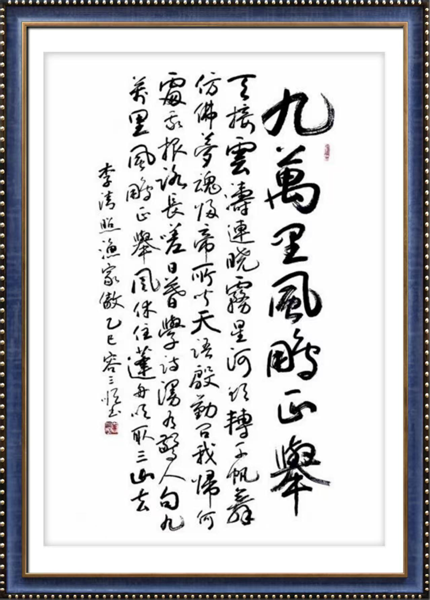 九萬里風鵬正舉
天接雲濤連曉霧星河欲轉千帆舞
仿佛夢魂歸帝所聞天語殷勤問我歸何
處我報路長嗟日暮學詩漫有驚人句九
萬里風鵬正舉風休住蓬舟吹取三山去
李清照漁家傲乙巳容三